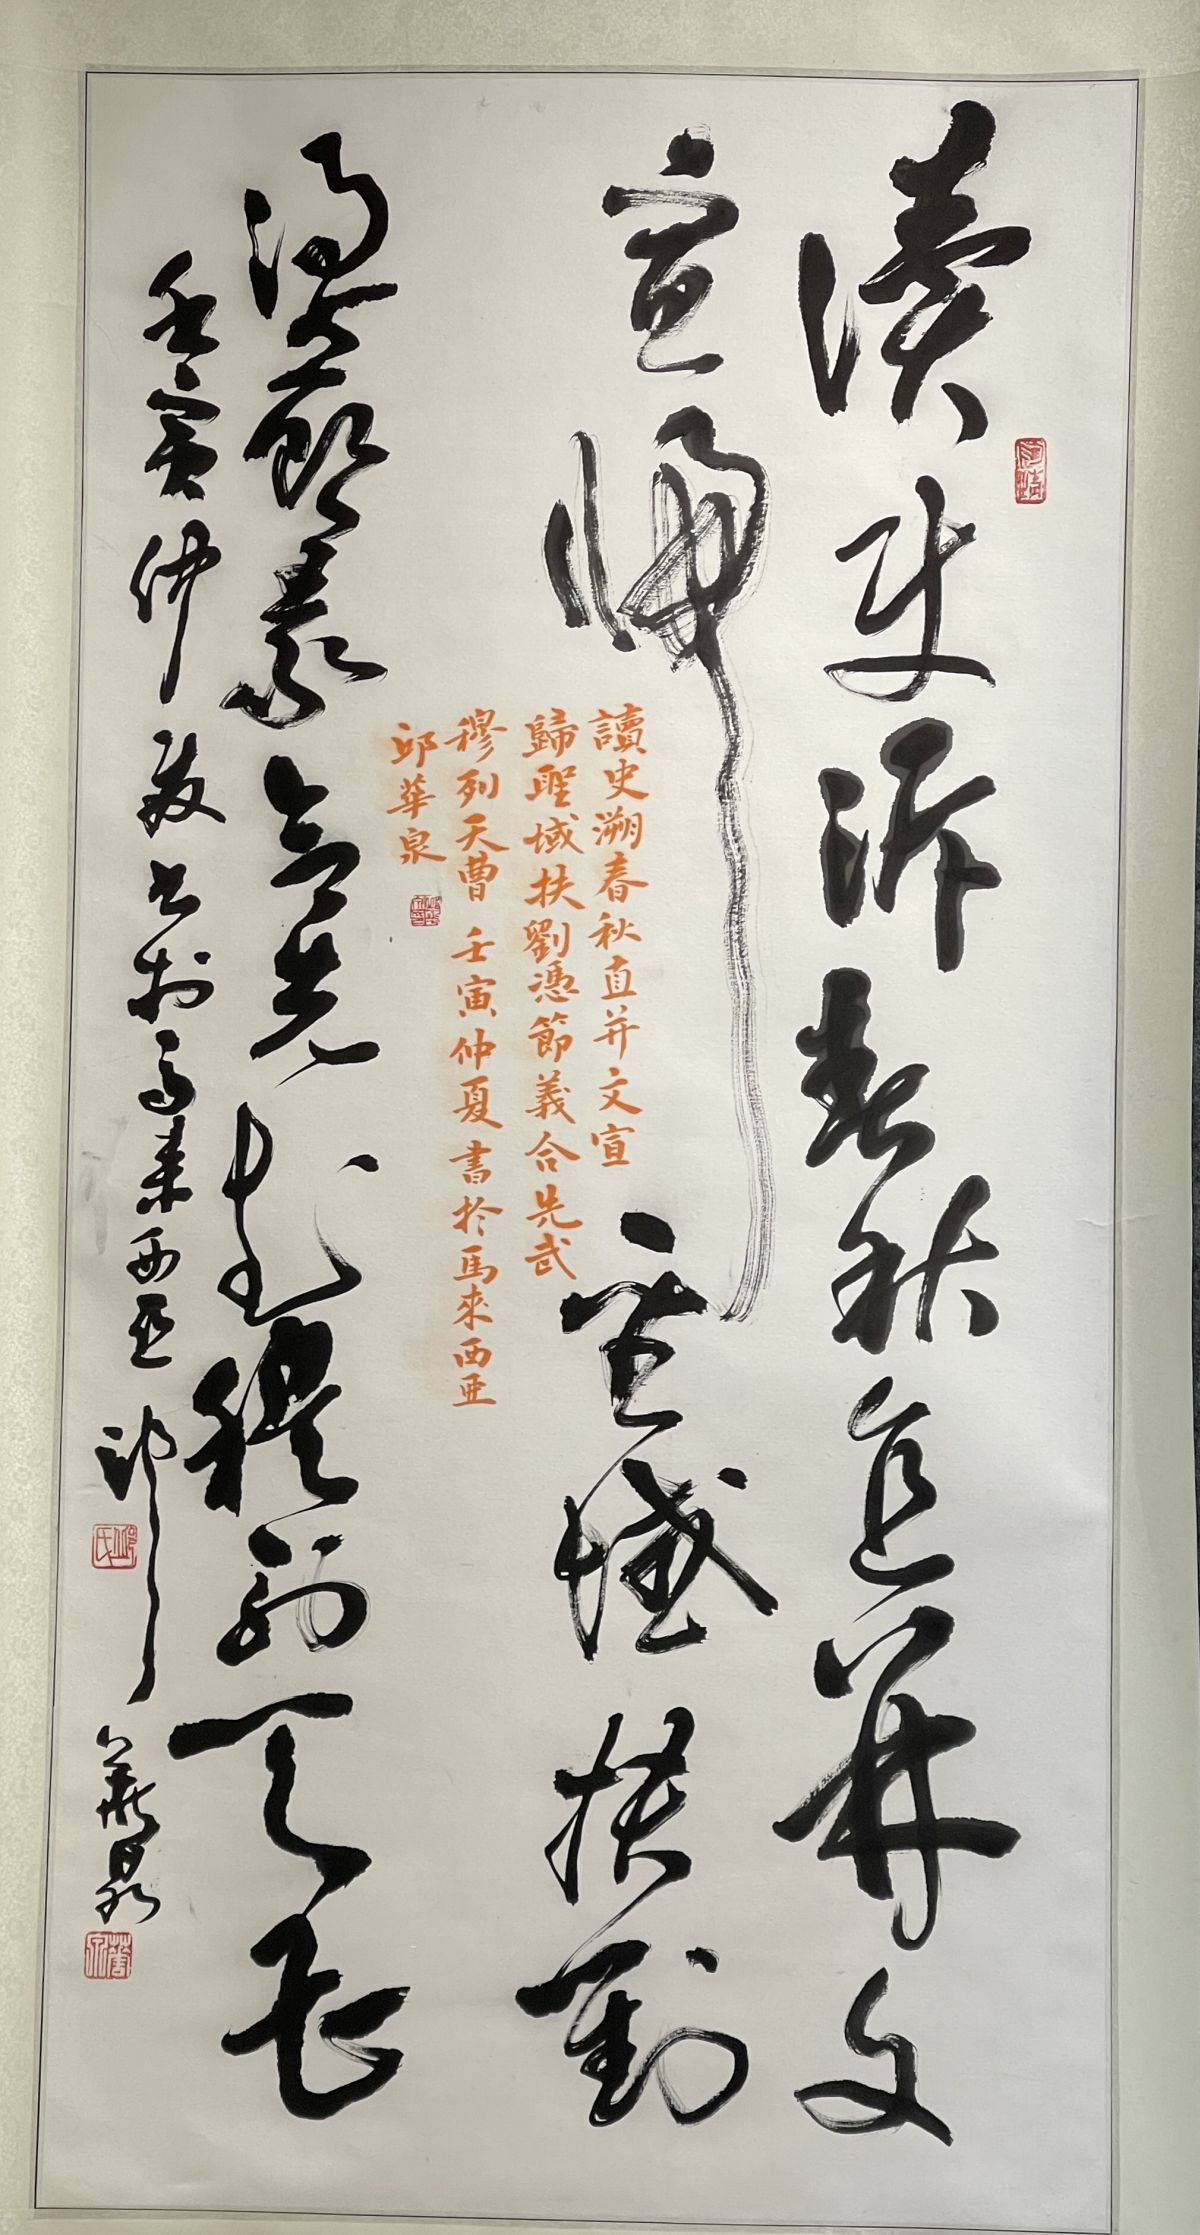 讀史溯春秋直并文
宣歸聖域扶劉
憑節義合先武穆列天曹
壬寅仲夏書於馬來西亞 邱華泉
讀史溯春秋直并文宣
歸聖域扶劉憑節義合先武
穆列天曹 壬寅仲夏書於馬來西亞
邱華泉
邱氏